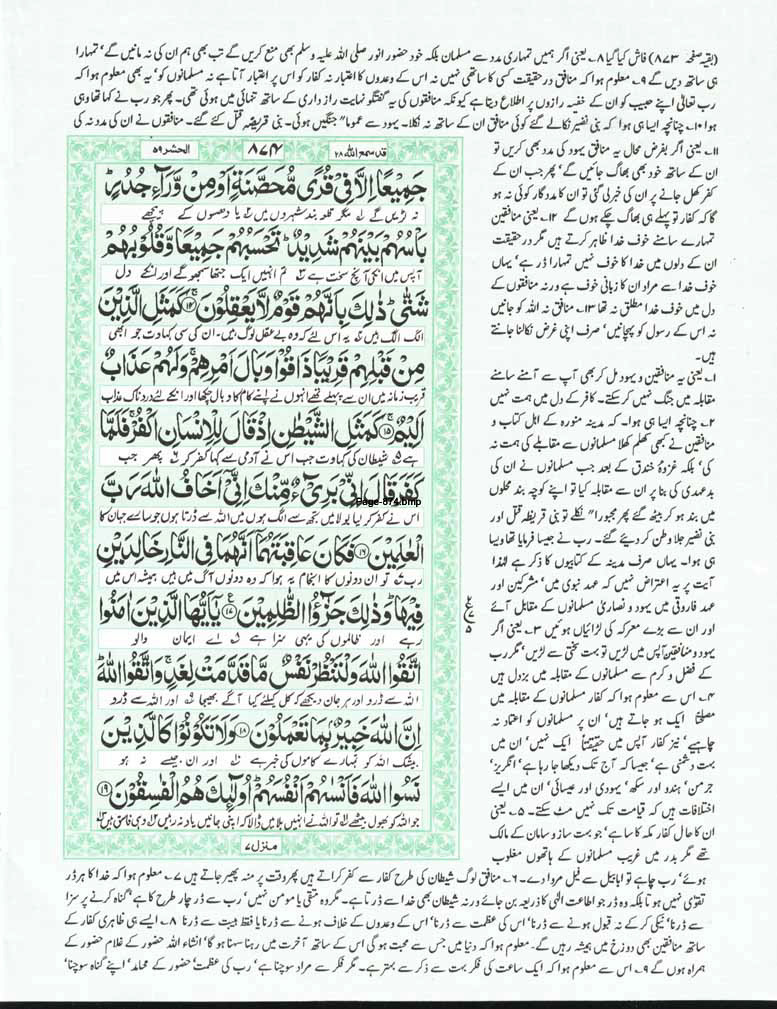 (بقیہ صفحہ ۸۷۳) فاش کیا گیا ۸۔ یعنی اگر ہمیں تمہاری مدد سے مسلمان بلکہ خود حضور انور صلی اللہ علیہ وسلم بھی منع کریں گے تب بھی ہم ان کی نہ مانیں گے' تمہارا
ہی ساتھ دیں گے ۹۔ معلوم ہوا کہ منافق درحقیقت کسی کا ساتھی نہیں نہ اس کے وعدوں کا اعتبار نہ کفار کو اس پر اعتبار آتا ہے نہ مسلمانوں کو' یہ بھی معلوم ہوا کہ
رب تعالیٰ اپنے حبیب کو ان کے خفیہ رازوں پر اطلاع دیتا ہے کیونکہ منافقوں کی یہ گفتگو نہایت رازداری کے ساتھ تنہائی میں ہوئی تھی۔ پھر جو رب نے کہا تھا وہی
ہوا ۱۰۔ چنانچہ ایسا ہی ہوا کہ بنی نضیر نکالے گئے کوئی منافق ان کے ساتھ نہ نکلا۔ یہود سے عموماً جنگیں ہوئی۔ بنی قریظہ قتل کئے گئے۔ منافقوں نے ان کی مدد نہ کی
۱۱۔ یعنی اگر بفرض محال یہ منافق یہود کی مدد بھی کریں تو
ان کے ساتھ خود بھی بھاگ جائیں گے' پھر جب ان کے
کفر کھل جانے پر ان کی خبر لی گئی تو ان کا مددگار کوئی نہ ہو
گا کہ کفار تو پہلے ہی بھاگ چکے ہوں گے ۱۲۔ یعنی منافقین
تمہارے سامنے خوف خدا ظاہر کرتے ہیں مگر درحقیقت
ان کے دلوں میں خدا کا خوف نہیں تمہارا ڈر ہے' یہاں
خوف خدا سے مراد ان کا زبانی خوف ہے ورنہ منافقوں کے
دل میں خوف خدا مطلق نہ تھا ۱۳۔ منافق نہ اللہ کو جانیں
نہ اس کے رسول کو پہچانیں' صرف اپنی غرض نکالنا جانتے
ہیں۔
۱۔ یعنی یہ منافقین و یہود مل کر بھی آپ سے آمنے سامنے
مقابلہ میں جنگ نہیں کر سکتے۔ کافر کے دل میں ہمت نہیں
۲۔ چنانچہ ایسا ہی ہوا۔ کہ مدینہ منورہ کے اہل کتاب و
منافقین نے کبھی کھلم کھلا مسلمانوں سے مقابلے کی ہمت نہ
کی' بلکہ غزوۂ خندق کے بعد جب مسلمانوں نے ان کی
بدعہدی کی بنا پر ان سے مقابلہ کیا تو اپنے کوچہ بند محلوں
میں بند ہو کر بیٹھ گئے پھر مجبوراً نکلے تو بنی قریظہ قتل اور
بنی نضیر جلاوطن کر دیئے گئے۔ رب نے جیسا فرمایا تھا ویسا
ہی ہوا۔ یہاں صرف مدینہ کے کتابیوں کا ذکر ہے لہٰذا
آیت پر یہ اعتراض نہیں کہ عہد نبوی میں' مشرکین اور
عہد فاروقی میں یہود و نصاریٰ مسلمانوں کے مقابل آئے
اور ان سے بڑے معرکہ کی لڑائیاں ہوئیں ۳۔ یعنی اگر
یہود و منافقین آپس میں لڑیں تو بہت سختی سے لڑیں' مگر رب
کے فضل و کرم سے مسلمانوں کے مقابلہ میں بزدل ہیں
۴۔ اس سے معلوم ہوا کہ کفار مسلمانوں کے مقابلہ میں
مصلحتاً ایک ہو جاتے ہیں' ان پر مسلمانوں کو اعتماد نہ
چاہیے' نیز کفار آپس میں حقیقتاً ایک نہیں' ان میں
بہت دشمنی ہے' جیسا کہ آج تک دیکھا جا رہا ہے' انگریز'
جرمن' ہندو اور سکھ' یہودی اور عیسائی' ان میں ایسے
اختلافات ہیں کہ قیامت تک نہیں مٹ سکتے۔ ۵۔ یعنی
ان کا حال کفار مکہ کا سا ہے' جو بہت ساز و سامان کے مالک
تھے مگر بدر میں غریب مسلمانوں کے ہاتھوں مغلوب
قد سمع اللہ ۲۸
۸۷۴
الحشر ۵۹
جَمِیْعًا اِلَّا فِیْ قُرًی مُّحَصَّنَةٍ اَوْ مِنْ وَّرَآءِ جُدُرٍ
نہ لڑیں گے مگر قلعہ بند شہروں میں یا دھسوں کے پیچھے
بَاْسُهُمْ بَیْنَهُمْ شَدِیْدٌ تَحْسَبُهُمْ جَمِیْعًا وَّ قُلُوْبُهُمْ
آپس میں انکی آنچ سخت ہے تم انہیں ایک جتھا سمجھو گے اور انکے دل
شَتّٰی ذٰلِكَ بِاَنَّهُمْ قَوْمٌ لَّا یَعْقِلُوْنَ ۱۴ كَمَثَلِ الَّذِیْنَ
الگ الگ ہیں یہ اس لئے کہ وہ بے عقل لوگ ہیں۔ ان کی سی کہاوت جو ابھی
مِنْ قَبْلِهِمْ قَرِیْبًا ذَاقُوْا وَبَالَ اَمْرِهِمْ وَلَهُمْ عَذَابٌ
قریب زمانہ میں ان سے پہلے تھے انہوں نے اپنے کام کا وبال چکھا اور انکے لئے دردناک عذاب
اَلِیْمٌ ۱۵ كَمَثَلِ الشَّیْطٰنِ اِذْ قَالَ لِلْاِنْسَانِ اكْفُرْ فَلَمَّا
ہے شیطان کی کہاوت جب اس نے آدمی سے کہا کفر کر پھر جب
كَفَرَ قَالَ اِنِّیْ بَرِیْٓءٌ مِّنْكَ اِنِّیْٓ اَخَافُ اللّٰهَ رَبَّ
Page-874.bmp
اس نے کفر کر لیا بولا میں تجھ سے الگ ہوں میں اللہ سے ڈرتا ہوں جو سارے جہان کا
الْعٰلَمِیْنَ ۱۶ فَكَانَ عَاقِبَتَهُمَآ اَنَّهُمَا فِی النَّارِ خَالِدَیْنِ
رب تو ان دونوں کا انجام یہ ہوا کہ وہ دونوں آگ میں ہیں ہمیشہ اس میں
فِیْهَا وَ ذٰلِكَ جَزٰٓؤُا الظّٰلِمِیْنَ ۱۷ یٰٓاَیُّهَا الَّذِیْنَ اٰمَنُوا
رہے اور ظالموں کی یہی سزا ہے اے ایمان والو
اتَّقُوا اللّٰهَ وَلْتَنْظُرْ نَفْسٌ مَّا قَدَّمَتْ لِغَدٍ وَاتَّقُوا اللّٰهَ
اللہ سے ڈرو اور ہر جان دیکھے کہ کل کیلئے کیا آگے بھیجا اور اللہ سے ڈرو
اِنَّ اللّٰهَ خَبِیْرٌۢ بِمَا تَعْمَلُوْنَ ۱۸ وَلَا تَكُوْنُوْا كَالَّذِیْنَ
بیشک اللہ کو تمہارے کاموں کی خبر ہے اور ان جیسے نہ ہو
نَسُوا اللّٰهَ فَاَنْسٰىهُمْ اَنْفُسَهُمْ اُولٰٓىِٕكَ هُمُ الْفٰسِقُوْنَ ۱۹
جو اللہ کو بھول بیٹھے تو اللہ نے انہیں بلا میں ڈالا کہ اپنی جانیں یاد نہ رہیں وہی فاسق ہیں
منزل ۷
ہوئے' رب چاہے تو ابابیل سے فیل مروا دے۔ ۶۔ منافق لوگ شیطان کی طرح کفار سے کفر کراتے ہیں پھر وقت پر منہ پھیر جاتے ہیں ۷۔ معلوم ہوا کہ خدا کا ہر ڈر
تقویٰ نہیں ہوتا بلکہ وہ ڈر جو اطاعت الٰہی کا ذریعہ بن جائے ورنہ شیطان بھی خدا سے ڈرتا ہے۔ مگر وہ متقی یا مومن نہیں' رب سے ڈر چار طرح کا ہے' گناہ کرنے پر سزا
سے ڈرنا' نیکی کر کے نہ قبول ہونے سے ڈرنا' اس کی عظمت سے ڈرنا' اس کے وعدوں کے خلاف ہونے سے ڈرنا یا فقط ہیبت سے ڈرنا ۸۔ ایسے ہی ظاہری کفار کے
ساتھ منافقین بھی دوزخ میں ہمیشہ رہیں گے۔ معلوم ہوا کہ دنیا میں جس سے محبت ہوگی اس کے ساتھ آخرت میں رہنا سہنا ہو گا' انشاء اللہ حضور کے غلام حضور کے
ہمراہ ہوں گے ۹۔ اس سے معلوم ہوا کہ ایک ساعت کی فکر بہت سے ذکر سے بہتر ہے۔ مگر فکر سے مراد سوچنا ہے' رب کی عظمت' حضور کے محامد' اپنے گناہ سوچنا'